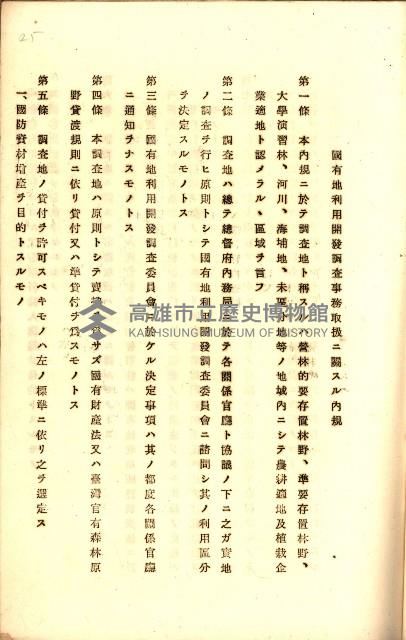 25
國有地利用開發調査事務取扱ニ關スル內規
第一條 本內規ニ於テ調査地ト稱スルハ營林的要存置林野、準要存置林野、
大學演習林、河川、海埔地、未要存地等ノ地域內ニシテ農耕適地及植栽企
業適地ト認メラルヽ區域ヲ言フ
第二條 調査地ハ總テ總督府內務局ニ於テ各關係官廳ト協議ノ下ニ之ガ實地
ノ調査ヲ行ヒ原則トシテ國有地利用開發調査委員會ニ諮問シ其ノ利用區分
ヲ決定スルモノトス
第三條 國有地利用開發調査委員會ニ於ケル決定事項ハ其ノ都度各關係官廳
ニ通知ヲナスモノトス
第四條 本調査地ハ原則トシテ賣拂ヲ爲サズ國有財產法又ハ臺灣官有森林原
野貸渡規則ニ依リ貸付又ハ準貸付ヲ爲スモノトス
第五條 調査地ノ貸付ヲ許可スベキモノハ左ノ標準ニ依リ之ヲ選定ス
一、國防資材增產ヲ目的トスルモノ
高雄市立歷史博物館
KAOHSIUNG MUSEUM OF HISTORY